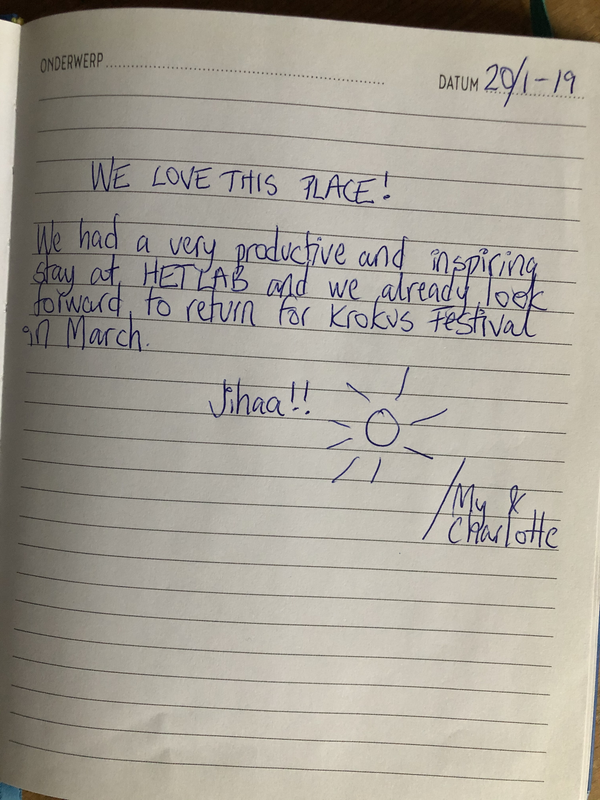 ONDERWERP
DATUM 20/1-19
WE LOVE THIS PLACE!
We had a very productive and inspiring
stay at HETLAB and we already look
forward to return for Krokus Festival
in March.
Jihaa!!
/My &
Charlotte